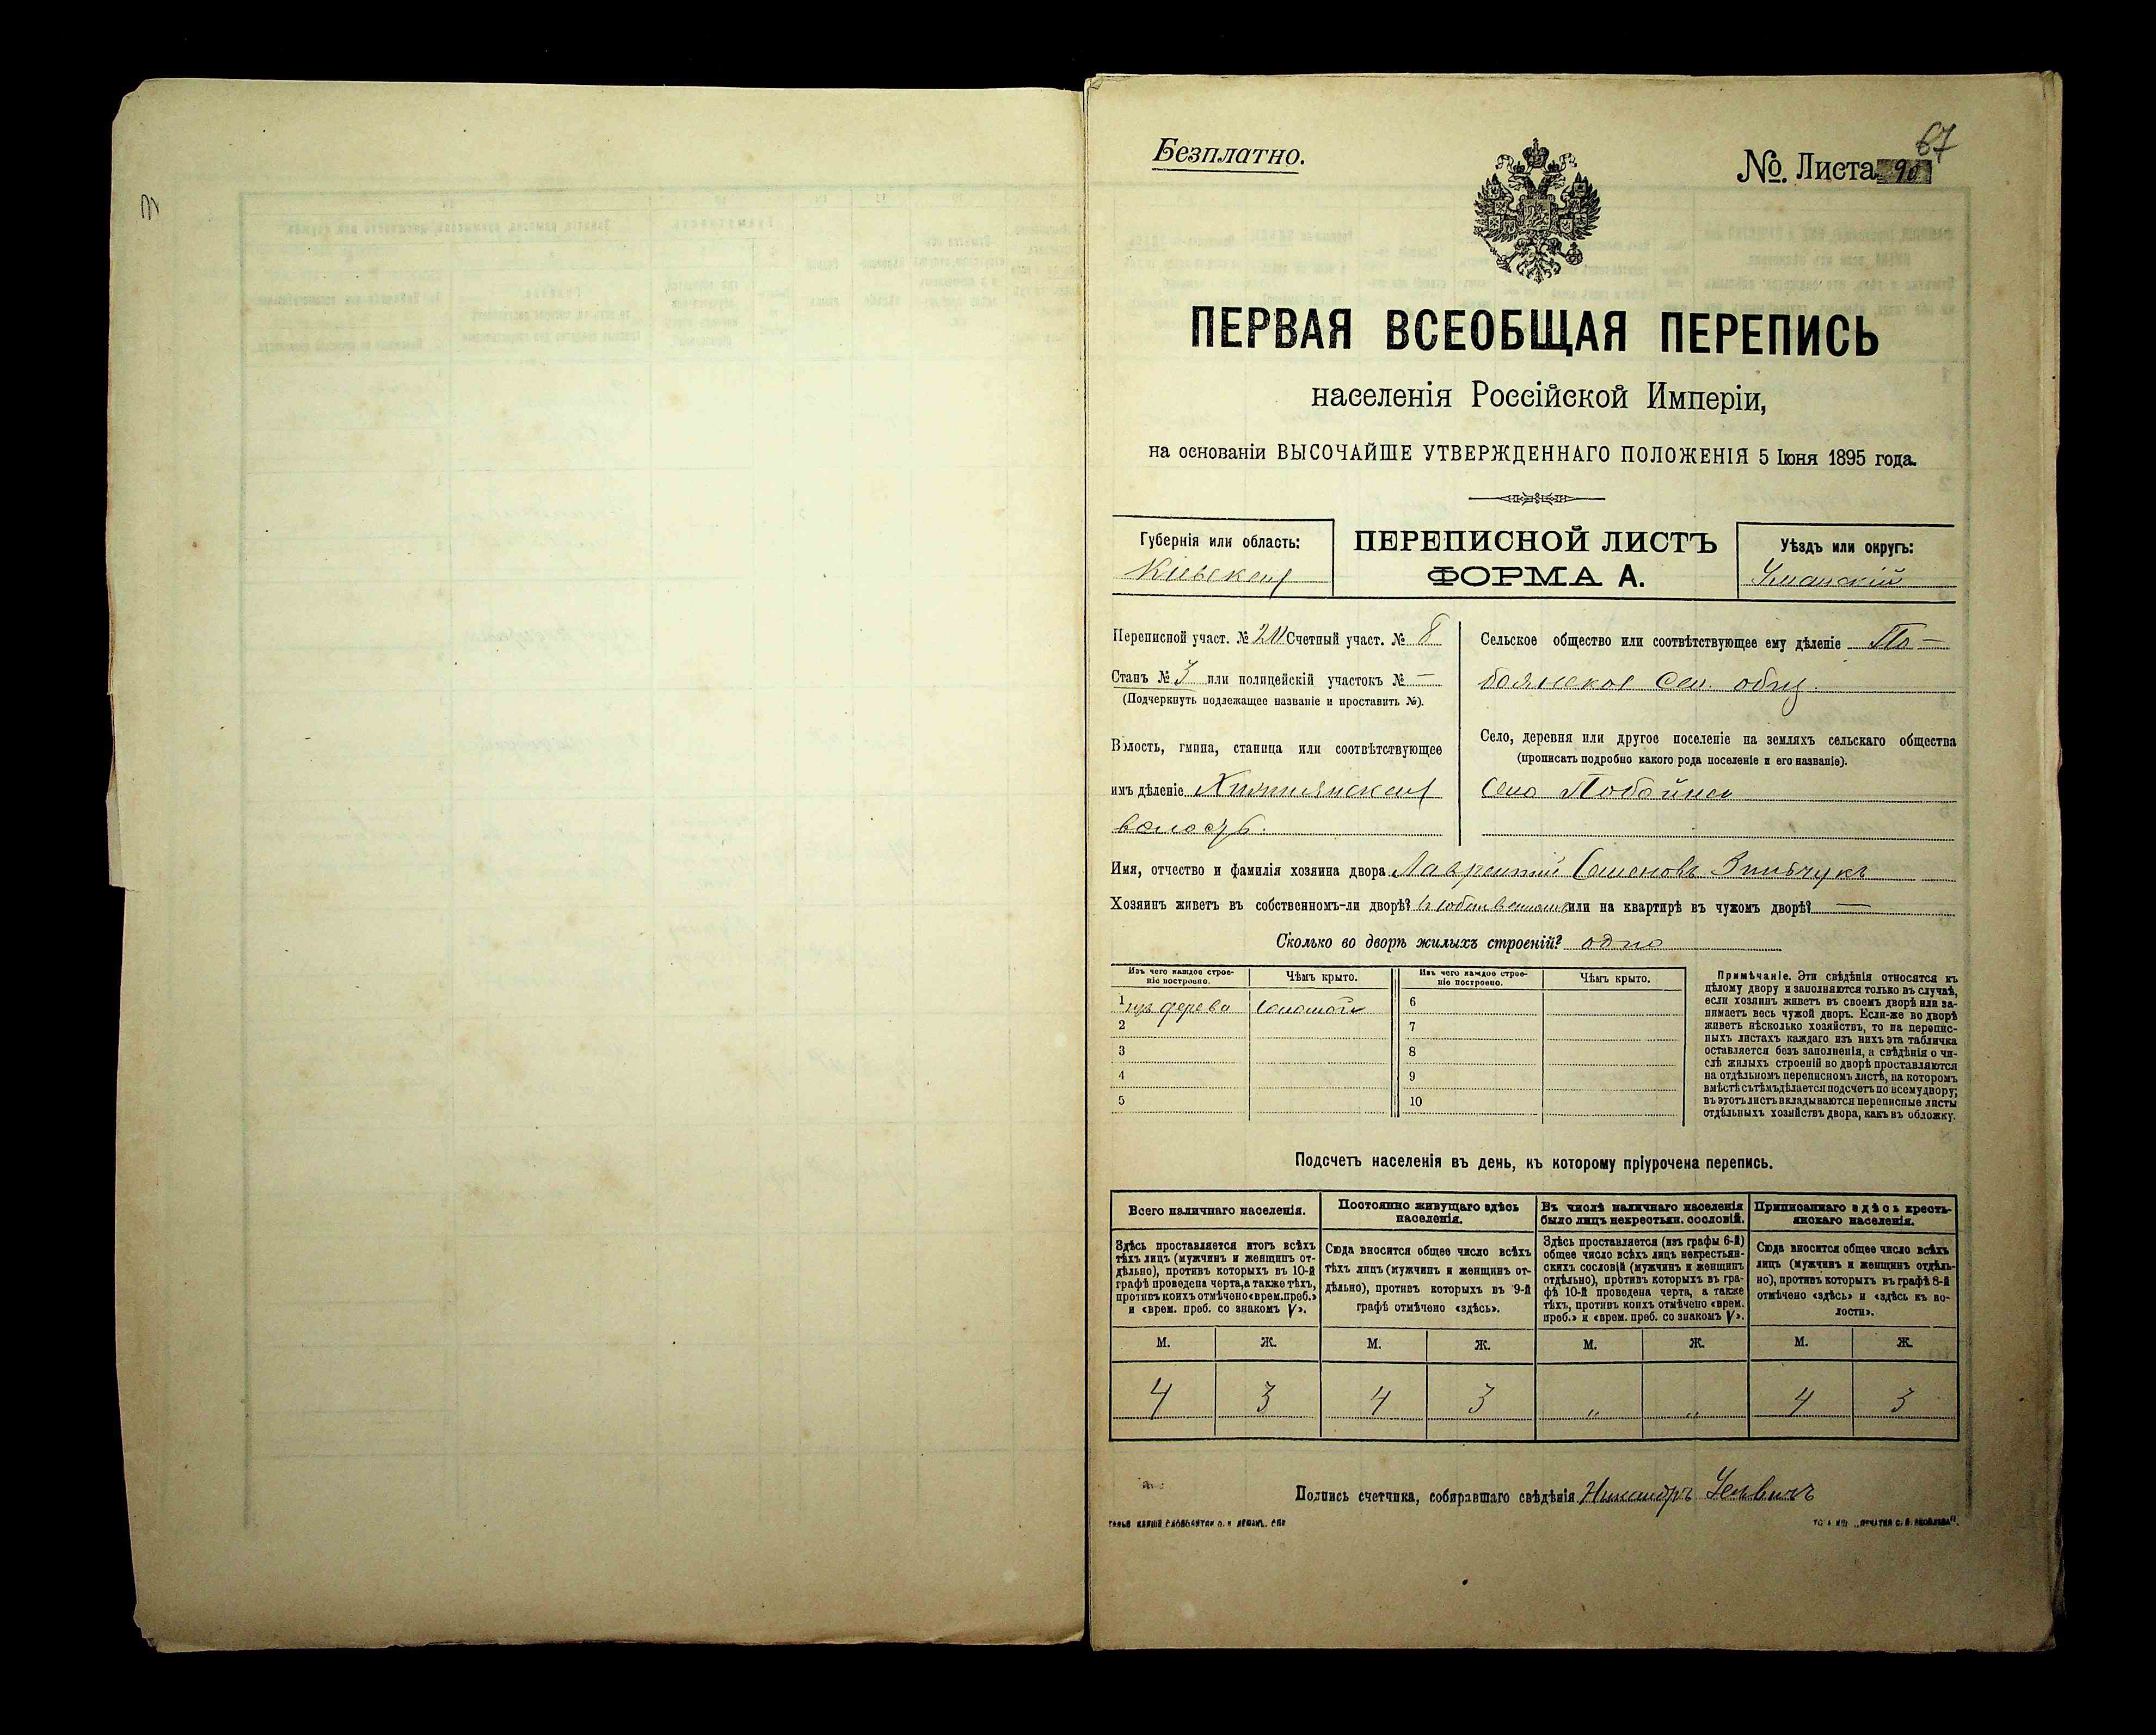 67
Безплатно.
№. Листа 90
ПЕРВАЯ ВСЕОБЩАЯ ПЕРЕПИСЬ
населенія Россійской Имперіи,
на основаніи ВЫСОЧАЙШЕ УТВЕРЖДЕННАГО ПОЛОЖЕНІЯ 5 Іюня 1895 года.
Губернія или область:
Кіевская
ПЕРЕПИСНОЙ ЛИСТЪ
ФОРМА А.
Уѣздъ или округъ:
Уманскій
Переписной участ. № Счетный участ. № 8
Станъ № 3 или полицейскій участокъ № —
(Подчеркнуть подлежащее названіе и проставить №).
Волость, гмина, станица или соотвѣтствующее
имъ дѣленіе
волость.
Сельское общество или соотвѣтствующее ему дѣленіе По—
боянское Сел. общ.
Село, деревня или другое поселеніе на земляхъ сельскаго общества
(прописать подробно какого рода поселеніе и его названіе).
Село Побойна
Имя, отчество и фамилія хозяина двора Лаврентій Семеновъ
Хозяинъ живетъ въ собственномъ-ли дворѣ? въ собственномъ или на квартирѣ въ чужомъ дворѣ? —
Сколько во дворѣ жилыхъ строеній? одно
Изъ чего каждое строе-
ніе построено.
Чѣмъ крыто.
Изъ чего каждое строе-
ніе построено.
Чѣмъ крыто.
1 изъ дерева соломой 6
2 7
3 8
4 9
5 10
Примѣчаніе. Эти свѣдѣнія относятся къ
цѣлому двору и заполняются только въ случаѣ,
если хозяинъ живетъ въ своемъ дворѣ или за-
нимаетъ весь чужой дворъ. Если-же во дворѣ
живетъ нѣсколько хозяйствъ, то на перепис-
ныхъ листахъ каждаго изъ нихъ эта табличка
оставляется безъ заполненія, а свѣдѣнія о чи-
слѣ жилыхъ строеній во дворѣ проставляются
на отдѣльномъ переписномъ листѣ, на которомъ
вмѣстѣ съ тѣмъ дѣлается подсчетъ по всему двору;
въ этотъ листъ вкладываются переписные листы
отдѣльныхъ хозяйствъ двора, какъ въ обложку.
Подсчетъ населенія въ день, къ которому пріурочена перепись.
Всего наличнаго населенія.
Постоянно живущаго здѣсь
населенія.
Въ числѣ наличнаго населенія
было лицъ некрестьян. сословій.
Приписаннаго здѣсь кресть-
янскаго населенія.
Здѣсь проставляется итогъ всѣхъ
тѣхъ лицъ (мужчинъ и женщинъ от-
дѣльно), противъ которыхъ въ 10-й
графѣ проведена черта, а также тѣхъ,
противъ коихъ отмѣчено «врем. преб.»
и «врем. преб. со знакомъ V».
Сюда вносится общее число всѣхъ
тѣхъ лицъ (мужчинъ и женщинъ от-
дѣльно), противъ которыхъ въ 9-й
графѣ отмѣчено «здѣсь».
Здѣсь проставляется (изъ графы 6-й)
общее число всѣхъ лицъ некрестьян-
скихъ сословій (мужчинъ и женщинъ
отдѣльно), противъ которыхъ въ гра-
фѣ 10-й проведена черта, а также
тѣхъ, противъ коихъ отмѣчено «врем.
преб.» и «врем. преб. со знакомъ V».
Сюда вносится общее число всѣхъ
лицъ (мужчинъ и женщинъ отдѣль-
но), противъ которыхъ въ графѣ 8-й
отмѣчено «здѣсь» и «здѣсь въ во-
лости».
М. Ж. М. Ж. М. Ж. М. Ж.
4 3 4 3 „ „ 4 3
Подпись счетчика, собиравшаго свѣдѣнія Никандръ